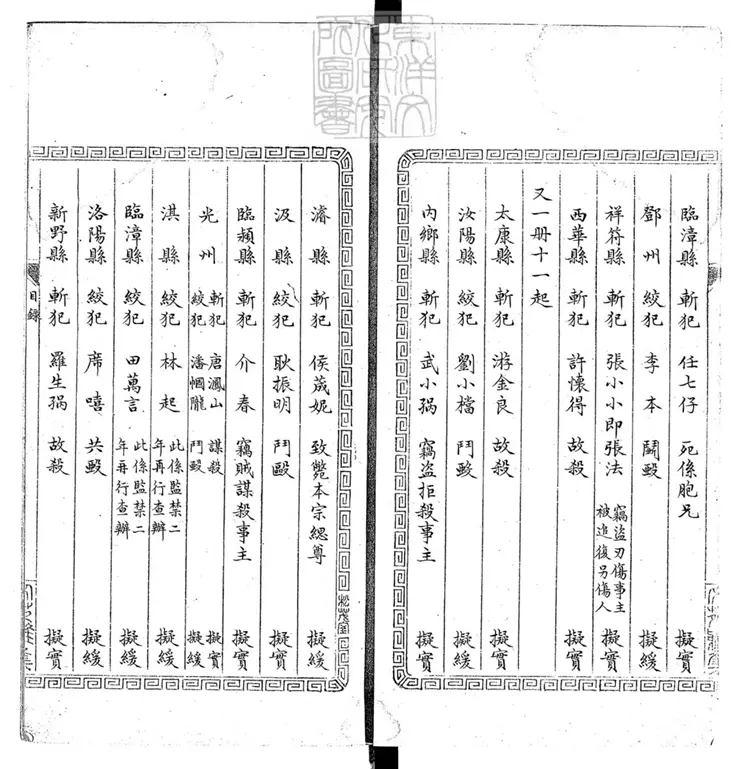 臨漳縣 斬犯 任七仔 死係胞兄 擬實
鄧州 絞犯 李本 鬭毆 擬緩
祥符縣 斬犯 張小小即張法 竊盜刃傷事主被追復另傷人 擬實
西華縣 斬犯 許懷得 故殺 擬實
又一册十一起
太康縣 斬犯 游金良 故殺 擬實
汝陽縣 絞犯 劉小檔 鬥毆 擬緩
內鄉縣 斬犯 武小 竊盜拒殺事主 擬實
濬縣 斬犯 侯荿妮 致斃本宗緦尊 擬緩
松茂室
汲縣 絞犯 耿振明 鬥毆 擬實
臨潁縣 斬犯 介春 竊賊謀殺事主 擬實
光州 斬犯 唐鳳山 謀殺 擬實
絞犯 潘幗隴 鬥毆 擬緩
淇縣 絞犯 林起 此係監禁二年再行查辦 擬緩
臨漳縣 絞犯 田萬言 此係監禁二年再行查辦 擬緩
洛陽縣 絞犯 席嘻 共毆 擬緩
新野縣 斬犯 羅生 故殺 擬實
目錄